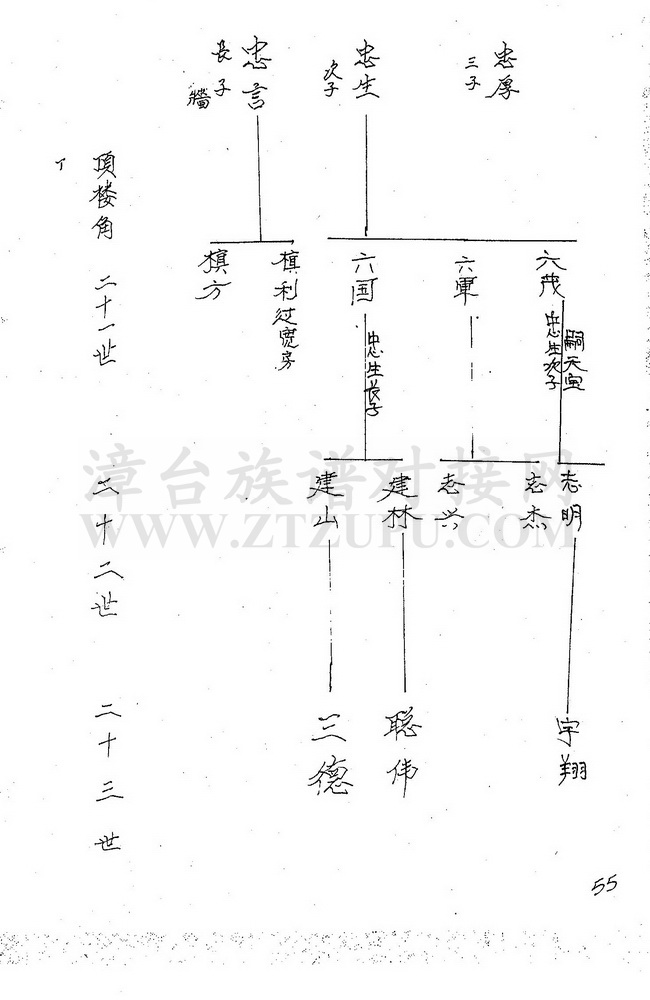 忠厚
三子
忠生
次子
忠言
長子
頂楼角
二十一世
六茂
嗣天宝
忠生次子
六軍
六国
忠生長子
槙利过宽房
槙方
二十二世
志明
志杰
志兴
建林
建山
漳台族谱对接网
WWW.ZTZUPU.COM
二十三世
宇翔
聪伟
三德
55